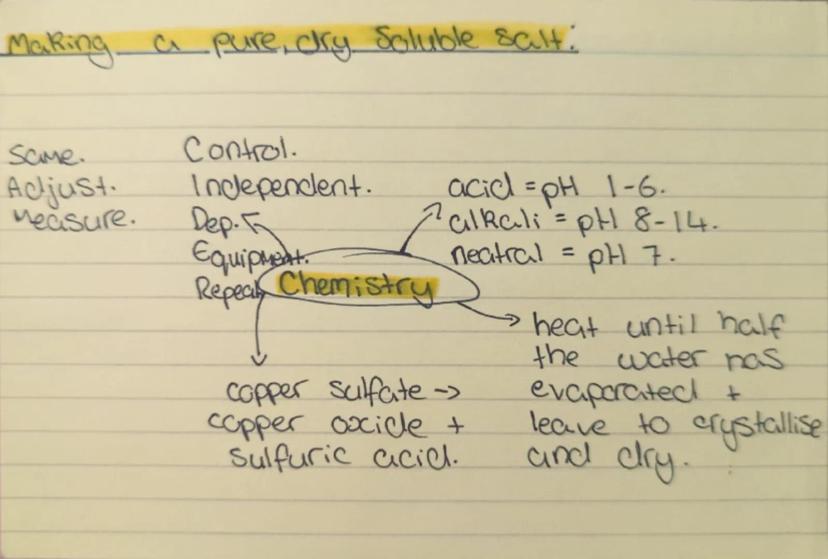 Making a pure, dry soluble salt:
Same. Control.
Adjust. Independent.
Measure. Dep.
Equipment.
Repeat
acid = pH 1-6.
alkali = pH 8-14.
neatral = pH 7.
Chemistry
copper sulfate ->
copper oxcide +
sulfuric acid.
heat until half
the water has
evaporated +
leave to crystallise
and dry.